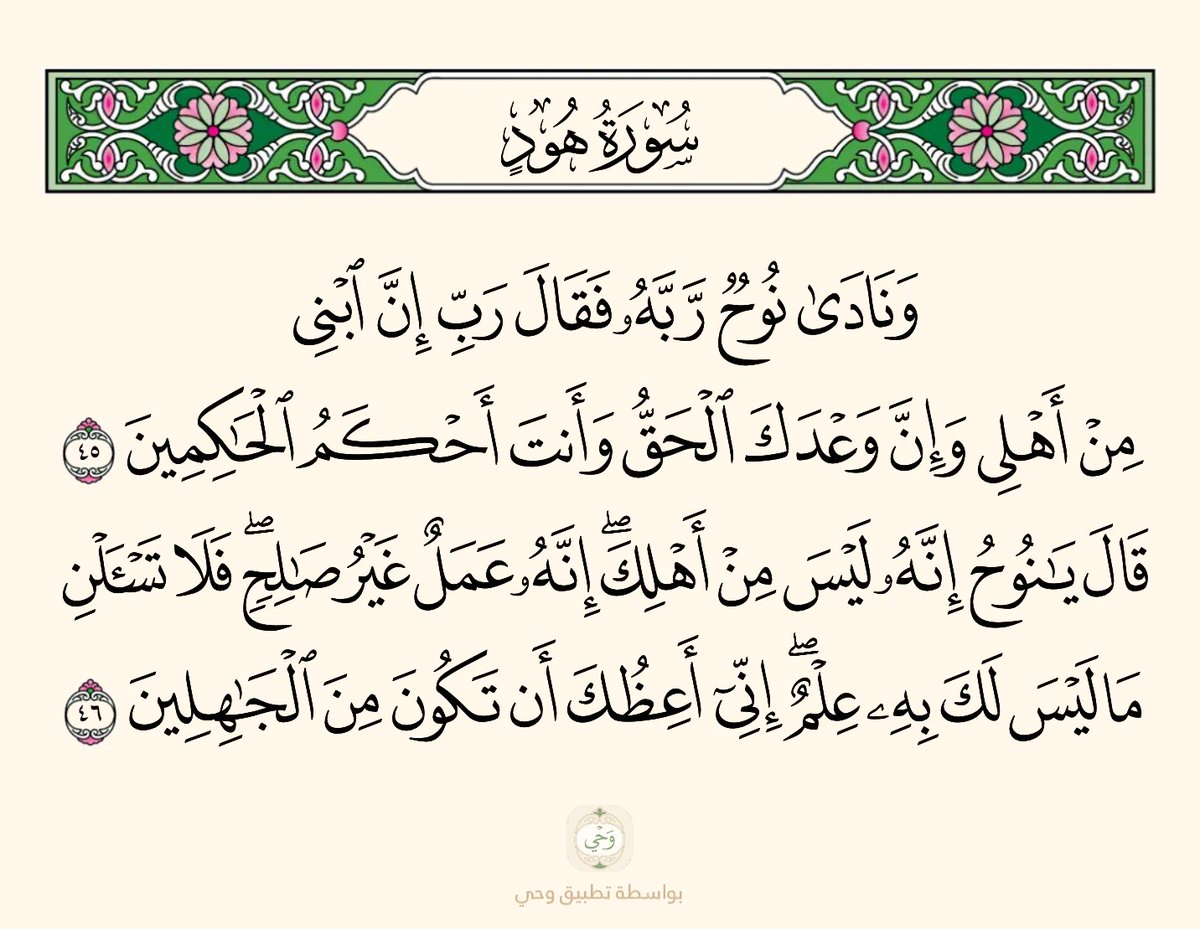 سُورَةُ هُودٍ
وَنَادَىٰ نُوحٌ رَّبَّهُۥ فَقَالَ رَبِّ إِنَّ ٱبْنِى
مِنْ أَهْلِى وَإِنَّ وَعْدَكَ ٱلْحَقُّ وَأَنتَ أَحْكَمُ ٱلْحَـٰكِمِينَ ٤٥
قَالَ يَـٰنُوحُ إِنَّهُۥ لَيْسَ مِنْ أَهْلِكَۖ إِنَّهُۥ عَمَلٌ غَيْرُ صَـٰلِحٍۖ فَلَا تَسْـَٔلْنِ
مَا لَيْسَ لَكَ بِهِۦ عِلْمٌۖ إِنِّىٓ أَعِظُكَ أَن تَكُونَ مِنَ ٱلْجَـٰهِلِينَ ٤٦
وَحْي
بواسطة تطبيق وحي